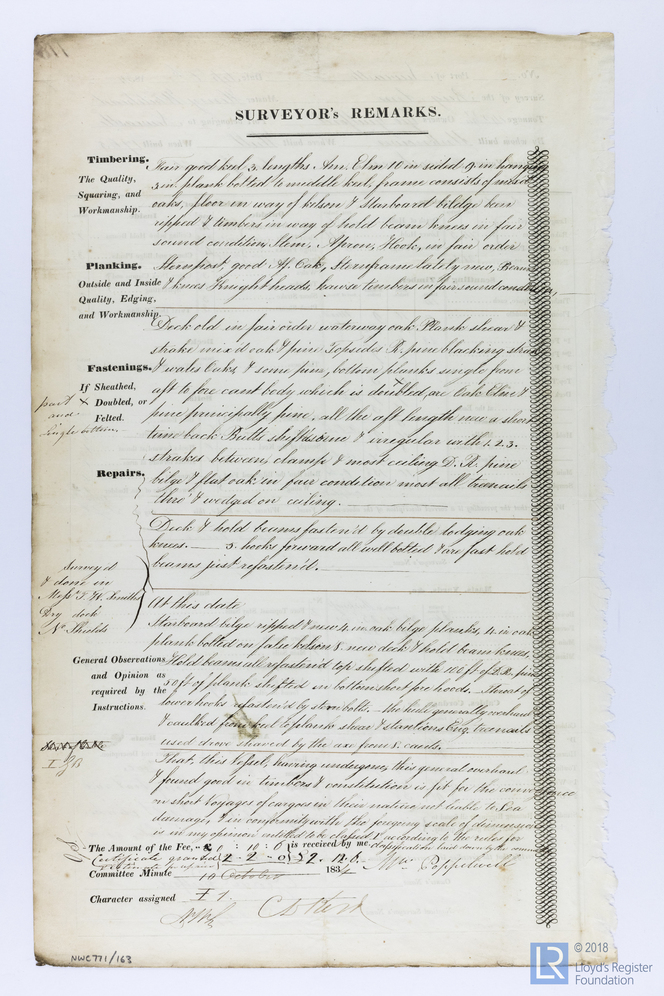 SURVEYOR's REMARKS.
Timbering.
The Quality,
Squaring, and
Workmanship.
Fair good keel 3 lengths Am. Elm 10 in sided 9 in hanging
3 in. plank bolted to middle keel, frame consists of
oaks, floor in way of kelson & Starboard bildge been
ripped & timbers in way of hold beam knees in fair
sound condition, Stem, Apron, Hook, in fair order
Planking.
Outside and Inside
Quality, Edging,
and Workmanship.
Sternpost, good Af. Oak, Sternframe lately new, Beams
& knees Knight heads, hawse timbers in fair sound condition,
Deck old in fair order waterway oak Plank shear &
strake mix'd oak & pine Topsides R. pine blacking strake
Fastenings.
If Sheathed,
Doubled, or
Felted.
part X
and
Single bottom.
& wales Oak, & some pine, bottom planks single from
aft to fore cant body which is doubled, are Oak Elm &
pine principally pine, all the aft length new a short
time back Butts shifts & irregular with 1. 2. 3.
strakes between, clamp & most ceiling D. R. pine
bilge & flat oak in fair condition most all treenails
thro' & wedged on ceiling.
Repairs.
Deck & hold beams fasten'd by double lodging oak
knees. 3 hooks forward all well bolted & are fast hold
beams just refasten'd.
Survey'd
& done in
Messrs T. & W. Smiths
Dry dock
No. Shields
At this date
Starboard bilge ripped & new 4 in oak bilge planks, 4 in oak
plank bolted on false kelson 8 new deck & hold beam knees,
General Observations
and Opinion as
required by the
Instructions.
Hold beams all refasten'd top shifted with 100 ft of D. R. pine
50 ft of plank shifted in bottom short fore hoods. throat of
lower hooks refasten'd by stem bolts. the hull generally overhaul'd
& caulked from keel to plank shear & stantions Eng. treenails
used drove shaved by the axe from 8 cants.
I
That, this Vessel, having undergone, this general overhaul
& found good in timbers & constitution is fit for the conveyance
on short Voyages of cargoes in their nature not liable to Sea
damage, & in conformity with the forgoing scale of dimensions
is in my opinion entitled to be classed I according to the rules for
classification laid down by the committee
The Amount of the Fee, - £0 : 10 : 0 is received by me
Certificate granted 2 - 2 - 0 £2. 12. 0. Wm. Poppelwell
Committee Minute 10 October 1834
Character assigned I 1
NWC771/163
LR
© 2018
Lloyd's Register
Foundation